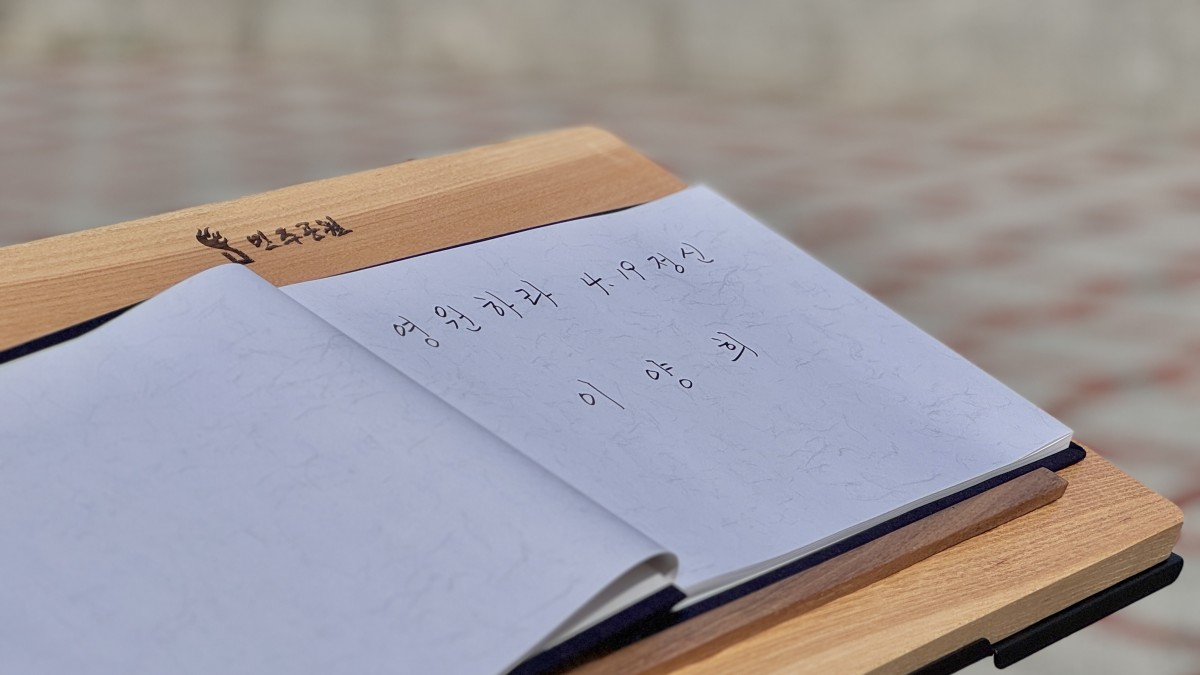 민주공원
영원하라 4.19정신
이양희